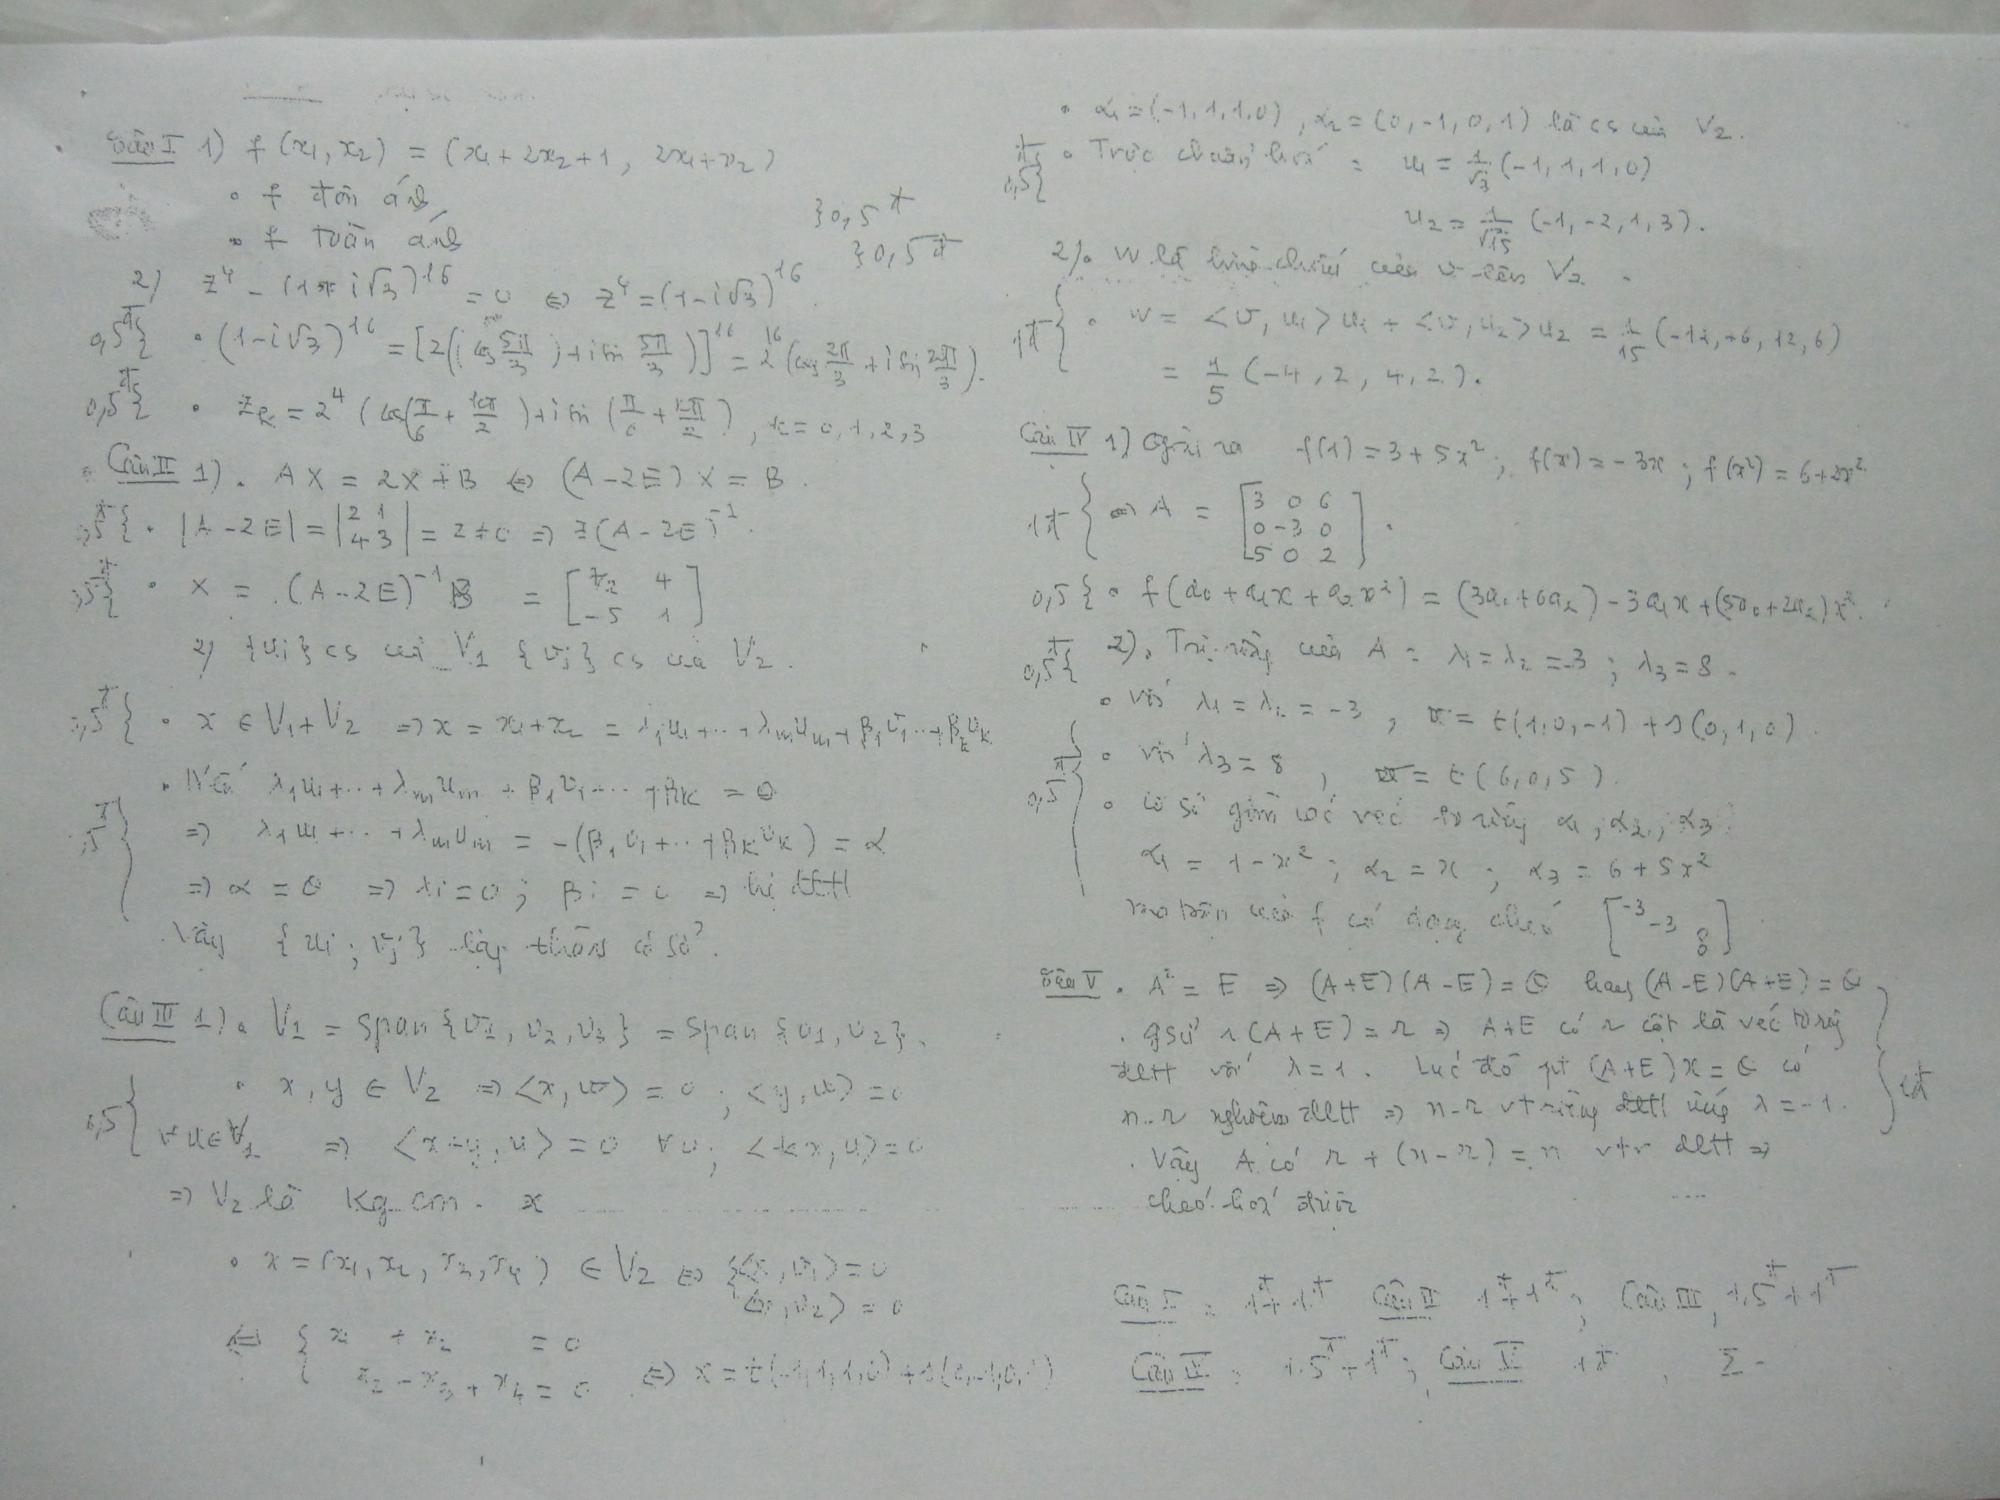 Câu I 1) f(x₁, x₂) = (x₁ + 2x₂ + 1, 2x₁ + x₂)
• f đơn ánh } 0,5đ
• f toàn ánh } 0,5đ
2) z⁴ - (1 - i√3)¹⁶ = 0 ⇔ z⁴ = (1 - i√3)¹⁶.
0,5đ { • (1 - i√3)¹⁶ = [2(cos 5π/3 + i sin 5π/3)]¹⁶ = 2¹⁶(cos 2π/3 + i sin 2π/3).
0,5đ { • z_k = 2⁴(cos(π/6 + kπ/2) + i sin(π/6 + kπ/2)), k = 0, 1, 2, 3
Câu II 1). AX = 2X + B ⇔ (A - 2E)X = B.
0,5đ { • |A - 2E| = |2 1; 4 3| = 2 ≠ 0 ⇒ ∃(A - 2E)⁻¹.
0,5đ { • X = (A - 2E)⁻¹B = [7/2 4; -5 1]
2) {uᵢ} cs của V₁ {vⱼ} cs của V₂.
0,5đ { • x ∈ V₁ + V₂ ⇒ x = x₁ + x₂ = λ₁u₁ + ... + λₘuₘ + β₁v₁ ... + βₖvₖ
0,5đ { • Nếu λ₁u₁ + ... + λₘuₘ + β₁v₁ ... + βₖ = θ
⇒ λ₁u₁ + ... + λₘuₘ = -(β₁v₁ + ... + βₖvₖ) = α
⇒ α = θ ⇒ λᵢ = 0; βᵢ = 0 ⇒ hệ đltt
Vậy {uᵢ; vⱼ} lập thành cơ sở.
Câu III 1). V₁ = span{v₁, v₂, v₃} = span{v₁, v₂}.
0,5 { • x, y ∈ V₂ ⇒ <x, u> = 0; <y, u> = 0
∀u ∈ V₁ ⇒ <x + y, u> = 0 ∀u; <kx, u> = 0
⇒ V₂ là kg con. x
• x = (x₁, x₂, x₃, x₄) ∈ V₂ ⇔ { <x, v₁> = 0
<x, v₂> = 0
⇔ { x₁ + x₂ = 0
x₂ - x₃ + x₄ = 0 ⇔ x = t(-1, 1, 1, 0) + s(0, -1, 0, 1)
• α₁ = (-1, 1, 1, 0), α₂ = (0, -1, 0, 1) là cs của V₂.
0,5đ { • Trực chuẩn hoá: u₁ = 1/√3 (-1, 1, 1, 0)
u₂ = 1/√15 (-1, -2, 1, 3).
2). w là hình chiếu của v lên V₂.
1đ { • w = <v, u₁>u₁ + <v, u₂>u₂ = 1/15 (-12, +6, 12, 6)
= 1/5 (-4, 2, 4, 2).
Câu IV 1) f(1) = 3 + 5x²; f(x) = -3x; f(x²) = 6 + 2x².
1đ { ⇒ A = [3 0 6; 0 -3 0; 5 0 2].
0,5 { • f(a₀ + a₁x + a₂x²) = (3a₀ + 6a₂) - 3a₁x + (5a₀ + 2a₂)x².
0,5đ { 2). Trị riêng của A: λ₁ = λ₂ = -3; λ₃ = 8.
• với λ₁ = λ₂ = -3, = t(1, 0, -1) + s(0, 1, 0).
0,5đ { • với λ₃ = 8, = t(6, 0, 5).
• Cơ sở gồm các véc tơ riêng α₁, α₂, α₃
α₁ = 1 - x²; α₂ = x; α₃ = 6 + 5x²
ma trận của f có dạng chéo [-3 -3 8]
Câu V. A² = E ⇒ (A+E)(A-E) = θ hay (A-E)(A+E) = θ
. gsử r(A+E) = r ⇒ A+E có r cột là véc tơ riêng
đltt với λ = 1. Lúc đó pt (A+E)x = θ có } 1đ
n-r nghiệm đltt ⇒ n-r vt riêng đltt ứng λ = -1.
. Vậy A có r + (n-r) = n vtr đltt ⇒
chéo hoá được
Câu I: 1đ + 1đ Câu II 1đ + 1đ; Câu III, 1.5đ + 1đ
Câu IV: 1.5đ + 1đ; Câu V 1đ, Σ =